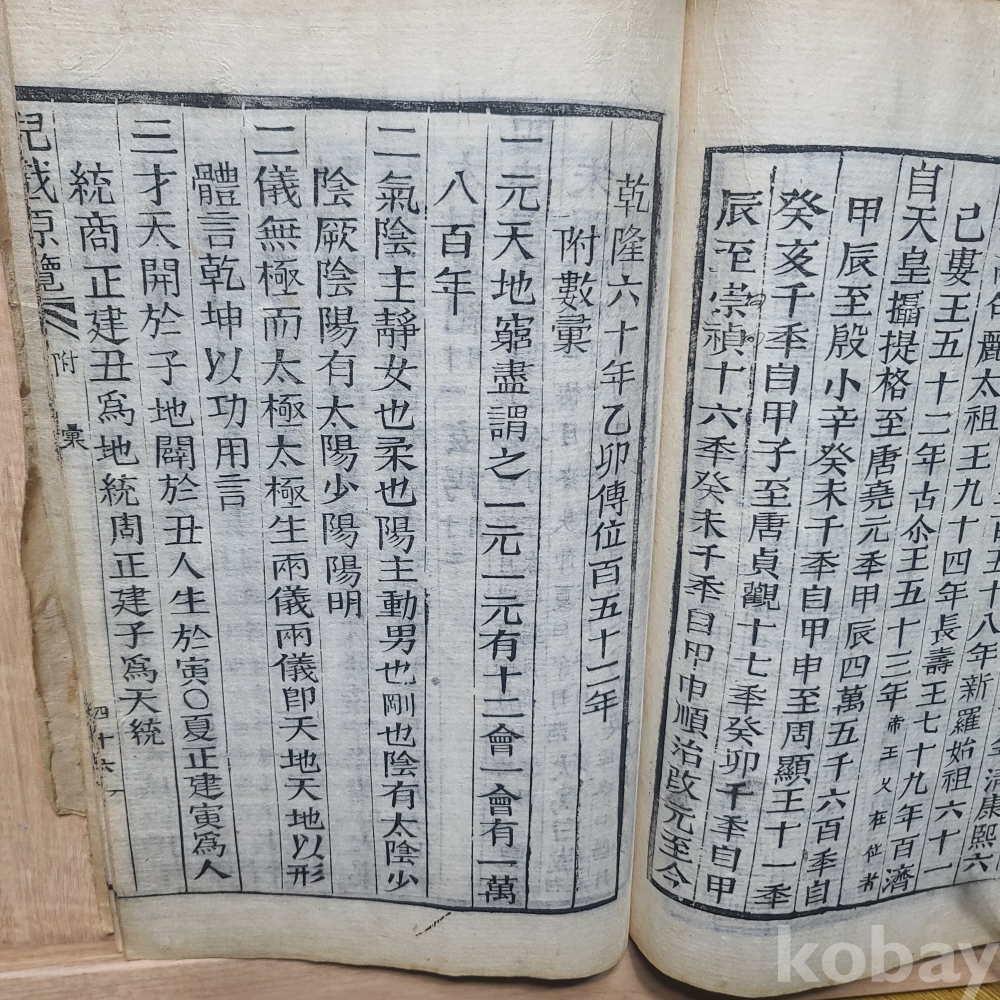 百五十八年新羅始祖六十一
己婁王五十二年古尒王五十三年
高句麗太祖王九十四年長壽王七十九年百濟
自天皇攝提格至唐堯元秊甲辰四萬五千六百秊自
甲辰至殷小辛癸未千秊自甲申至周顯王十一秊
癸亥千秊自甲子至唐貞觀十七秊癸卯千秊自甲
辰至崇禎十六秊癸未千秊自甲申順治改元至今
乾隆六十年乙卯傳位百五十二年
附數彙
一元天地窮盡謂之一元一元有十二會一會有一萬
八百年
二氣陰主靜女也柔也陽主動男也剛也陰有太陰少
陰厥陰陽有太陽少陽陽明
二儀無極而太極太極生兩儀兩儀卽天地天地以形
體言乾坤以功用言
三才天開於子地闢於丑人生於寅〇夏正建寅爲人
統商正建丑爲地統周正建子爲天統
兒戱原覽 附彙 四十六
kobay